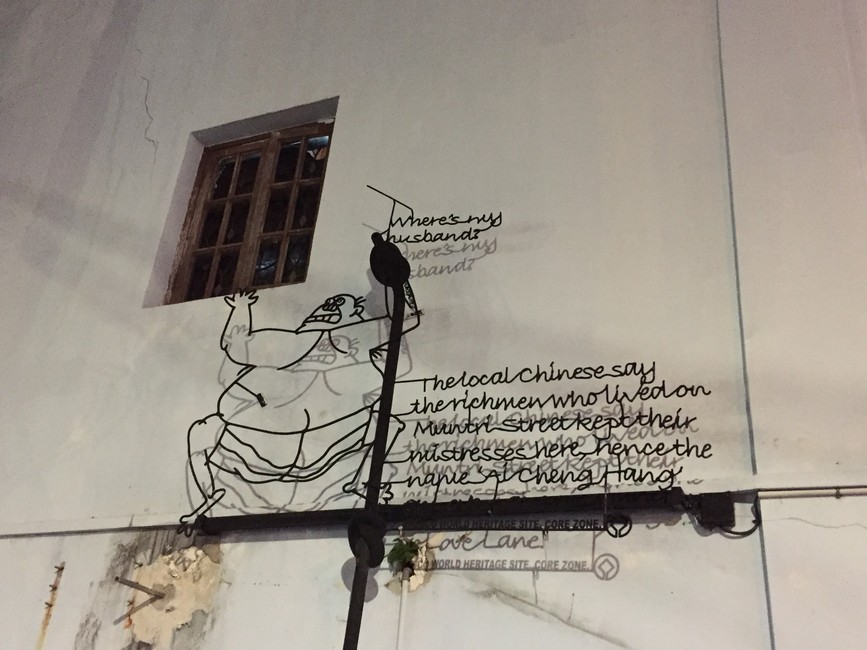 Where's my
husband?
The local Chinese say
the rich men who lived on
Muntri Street kept their
mistresses here, hence the
name 'Ai Cheng Hang'
Love Lane.
WORLD HERITAGE SITE. CORE ZONE.